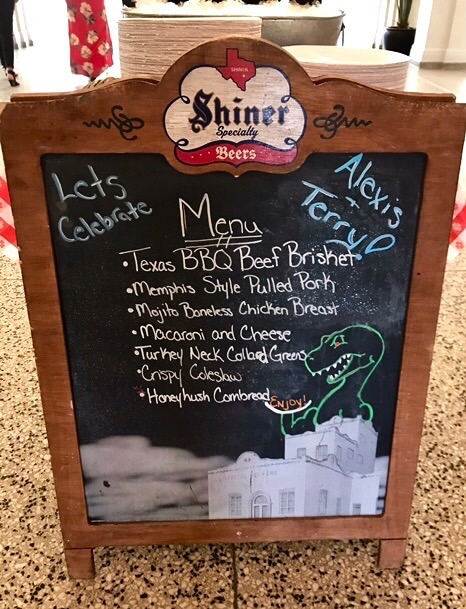 SHINER
Shiner
Specialty
Beers
Lets
Celebrate
Alexis
+
Terry
Menu
• Texas BBQ Beef Brisket
• Memphis Style Pulled Pork
• Mojito Boneless Chicken Breast
• Macaroni and Cheese
• Turkey Neck Collard Greens
• Crispy Coleslaw
• Honeyhush Cornbread
ENJOY!